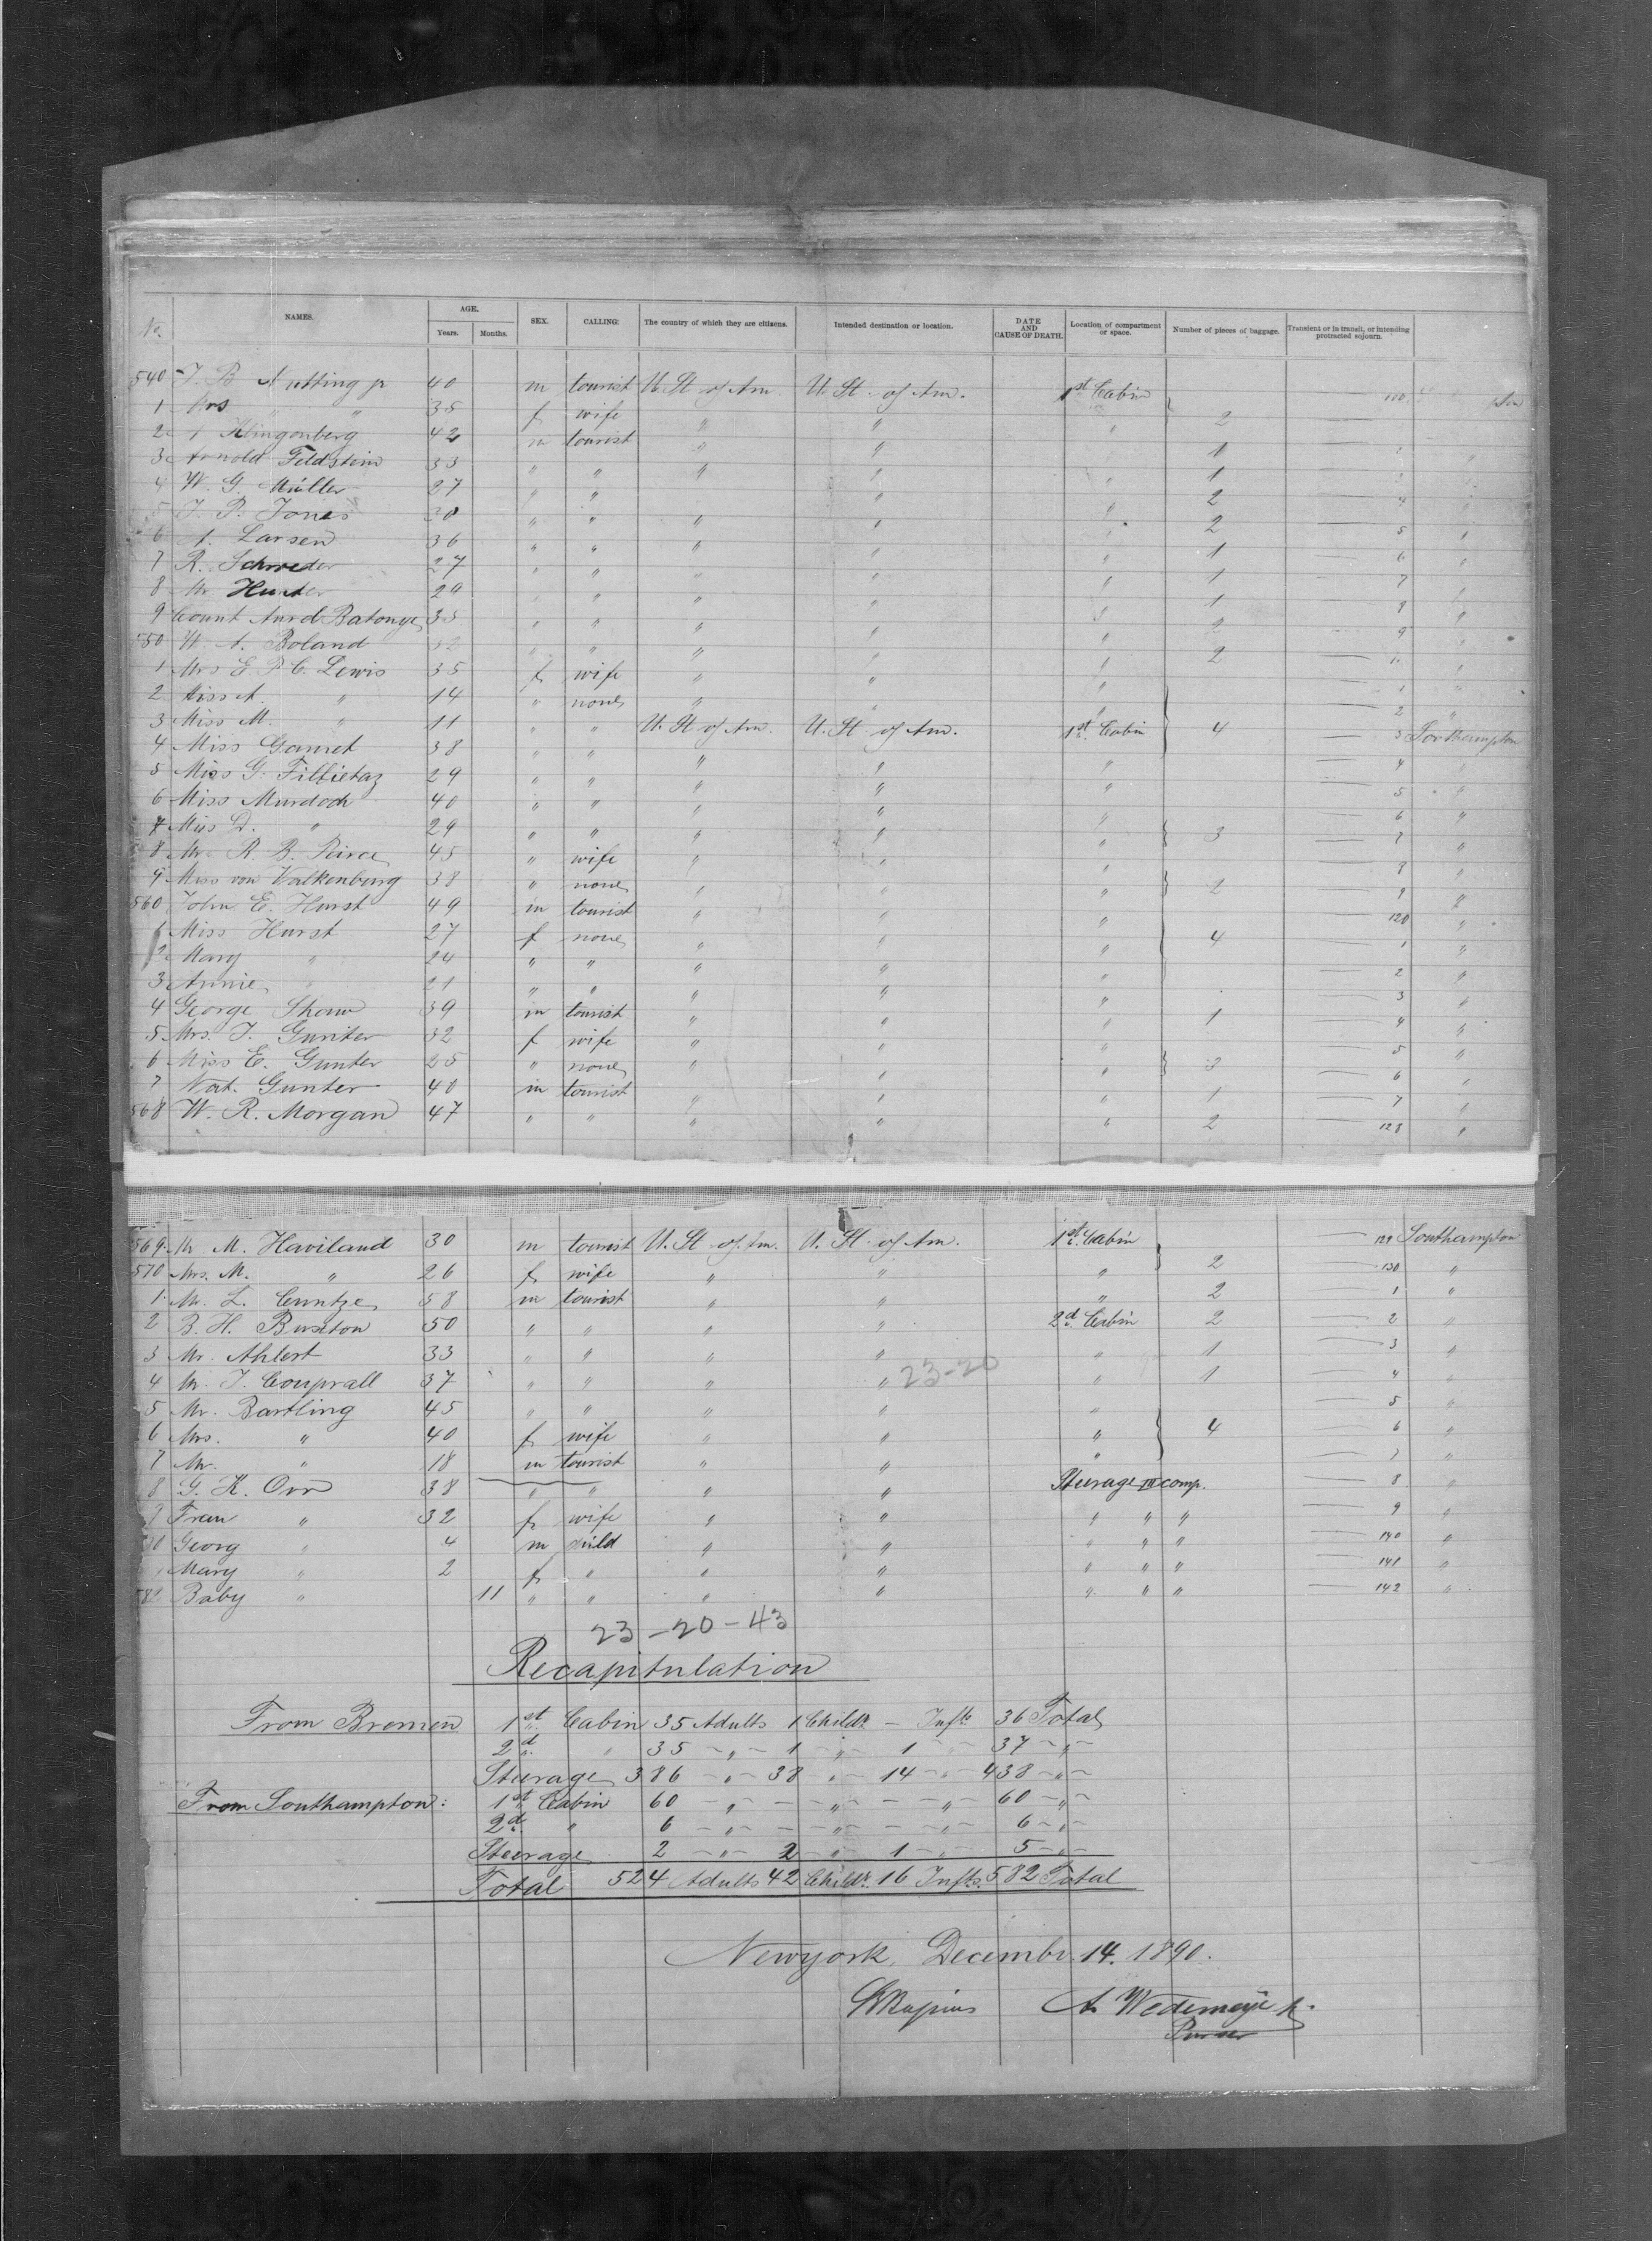 No. NAMES. AGE. Years. Months. SEX. CALLING. The country of which they are citizens. Intended destination or location. DATE AND CAUSE OF DEATH. Location of compartment or space. Number of pieces of baggage. Transient or in transit, or intending protracted sojourn.
540 J. B. Nutting jr 40 m tourist U. St. of Am. U. St. of Am. 1st Cabin
1 Mrs " " 35 f wife " " 2
2 Klingonberg 42 m tourist " " " 1
3 Arnold Feldstein 33 " " " " 1
4 W. G. Müller 27 " " " " 2 4
5 J. P. Jones 30 " " " " " 2 5 "
6 A. Larsen 36 " " " " " 1 6 "
7 R. Schroeder 27 " " " " " 1 7 "
8 Mr Hunter 29 " " " " " 1 8 "
9 Count Aurd Batonye 35 " " " " " 2 9 "
550 W. A. Roland 32 " " " " " 2 "
1 Mrs E. P. C. Lewis 35 f wife " " " 1 "
2 Miss A. " 14 " none " " " 2 "
3 Miss M. " 11 " " U. St. of Am. U. St. of Am. 1st Cabin 4 3 Southampton
4 Miss Garnet 38 " " " " " 4 "
5 Miss G. Filbietaz 29 " " " " " 5 "
6 Miss Murdoch 40 " " " " " 6 "
7 Miss D. " 29 " " " " " 3 7 "
8 Mrs R. B. Peirce 45 " wife " " " 8 "
9 Miss von Valkenburg 38 " none " " " 2 9 "
560 John E. Hurst 49 m tourist " " " 120 "
1 Miss Hurst 27 f none " " " 4 1 "
2 Mary " 24 " " " " " 2 "
3 Annie " 21 " " " " " 3 "
4 George Shaw 39 m tourist " " " 1 4 "
5 Mrs. J. Gunter 32 f wife " " " 5 "
6 Miss E. Gunter 25 " none " " " 3 6 "
7 Nat. Gunter 40 m tourist " " " 1 7 "
568 W. R. Morgan 47 " " " " " 2 128 "
569 Mr M. Haviland 30 m tourist U. St. of Am. U. St. of Am. 1st Cabin 129 Southampton
570 Mrs. M. " 26 f wife " " " 2 130 "
1 Mr. L. Cuntze 58 m tourist " " " 2 1 "
2 B. H. Buxton 50 " " " " 2d Cabin 2 2 "
3 Mr. Ahlert 33 " " " " " 1 3 "
4 Mr. J. Couprall 37 " " " " 23-20 " 1 4 "
5 Mr. Bartling 45 " " " " " 5 "
6 Mrs. " 40 f wife " " " 4 6 "
7 Mr. " 18 m tourist " " " 7 "
8 G. K. Orr 38 " " " " Steerage III comp. 8 "
9 Frau " 32 f wife " " " " " 9 "
80 Georg " 4 m child " " " " " 140 "
1 Mary " 2 f " " " " " " 141 "
582 Baby " 11 " " " " " " " 142 "
23-20-43
Recapitulation
From Bremen 1st Cabin 35 Adults 1 Childr. — Infts. 36 Total
2d " 35 — " — 1 — " — 1 — 37 — " —
Steerage 386 — " — 38 " — 14 — " — 438 — " —
From Southampton: 1st Cabin 60 — " — — " — — " — 60 — " —
2d " 6 — " — — " — — " — 6 — " —
Steerage 2 — " — 2 " — 1 — " — 5 — " —
Total 524 Adults 42 Childr. 16 Infts. 582 Total
Newyork, Decembr. 14. 1890.
A. Wedemeyer
Purser